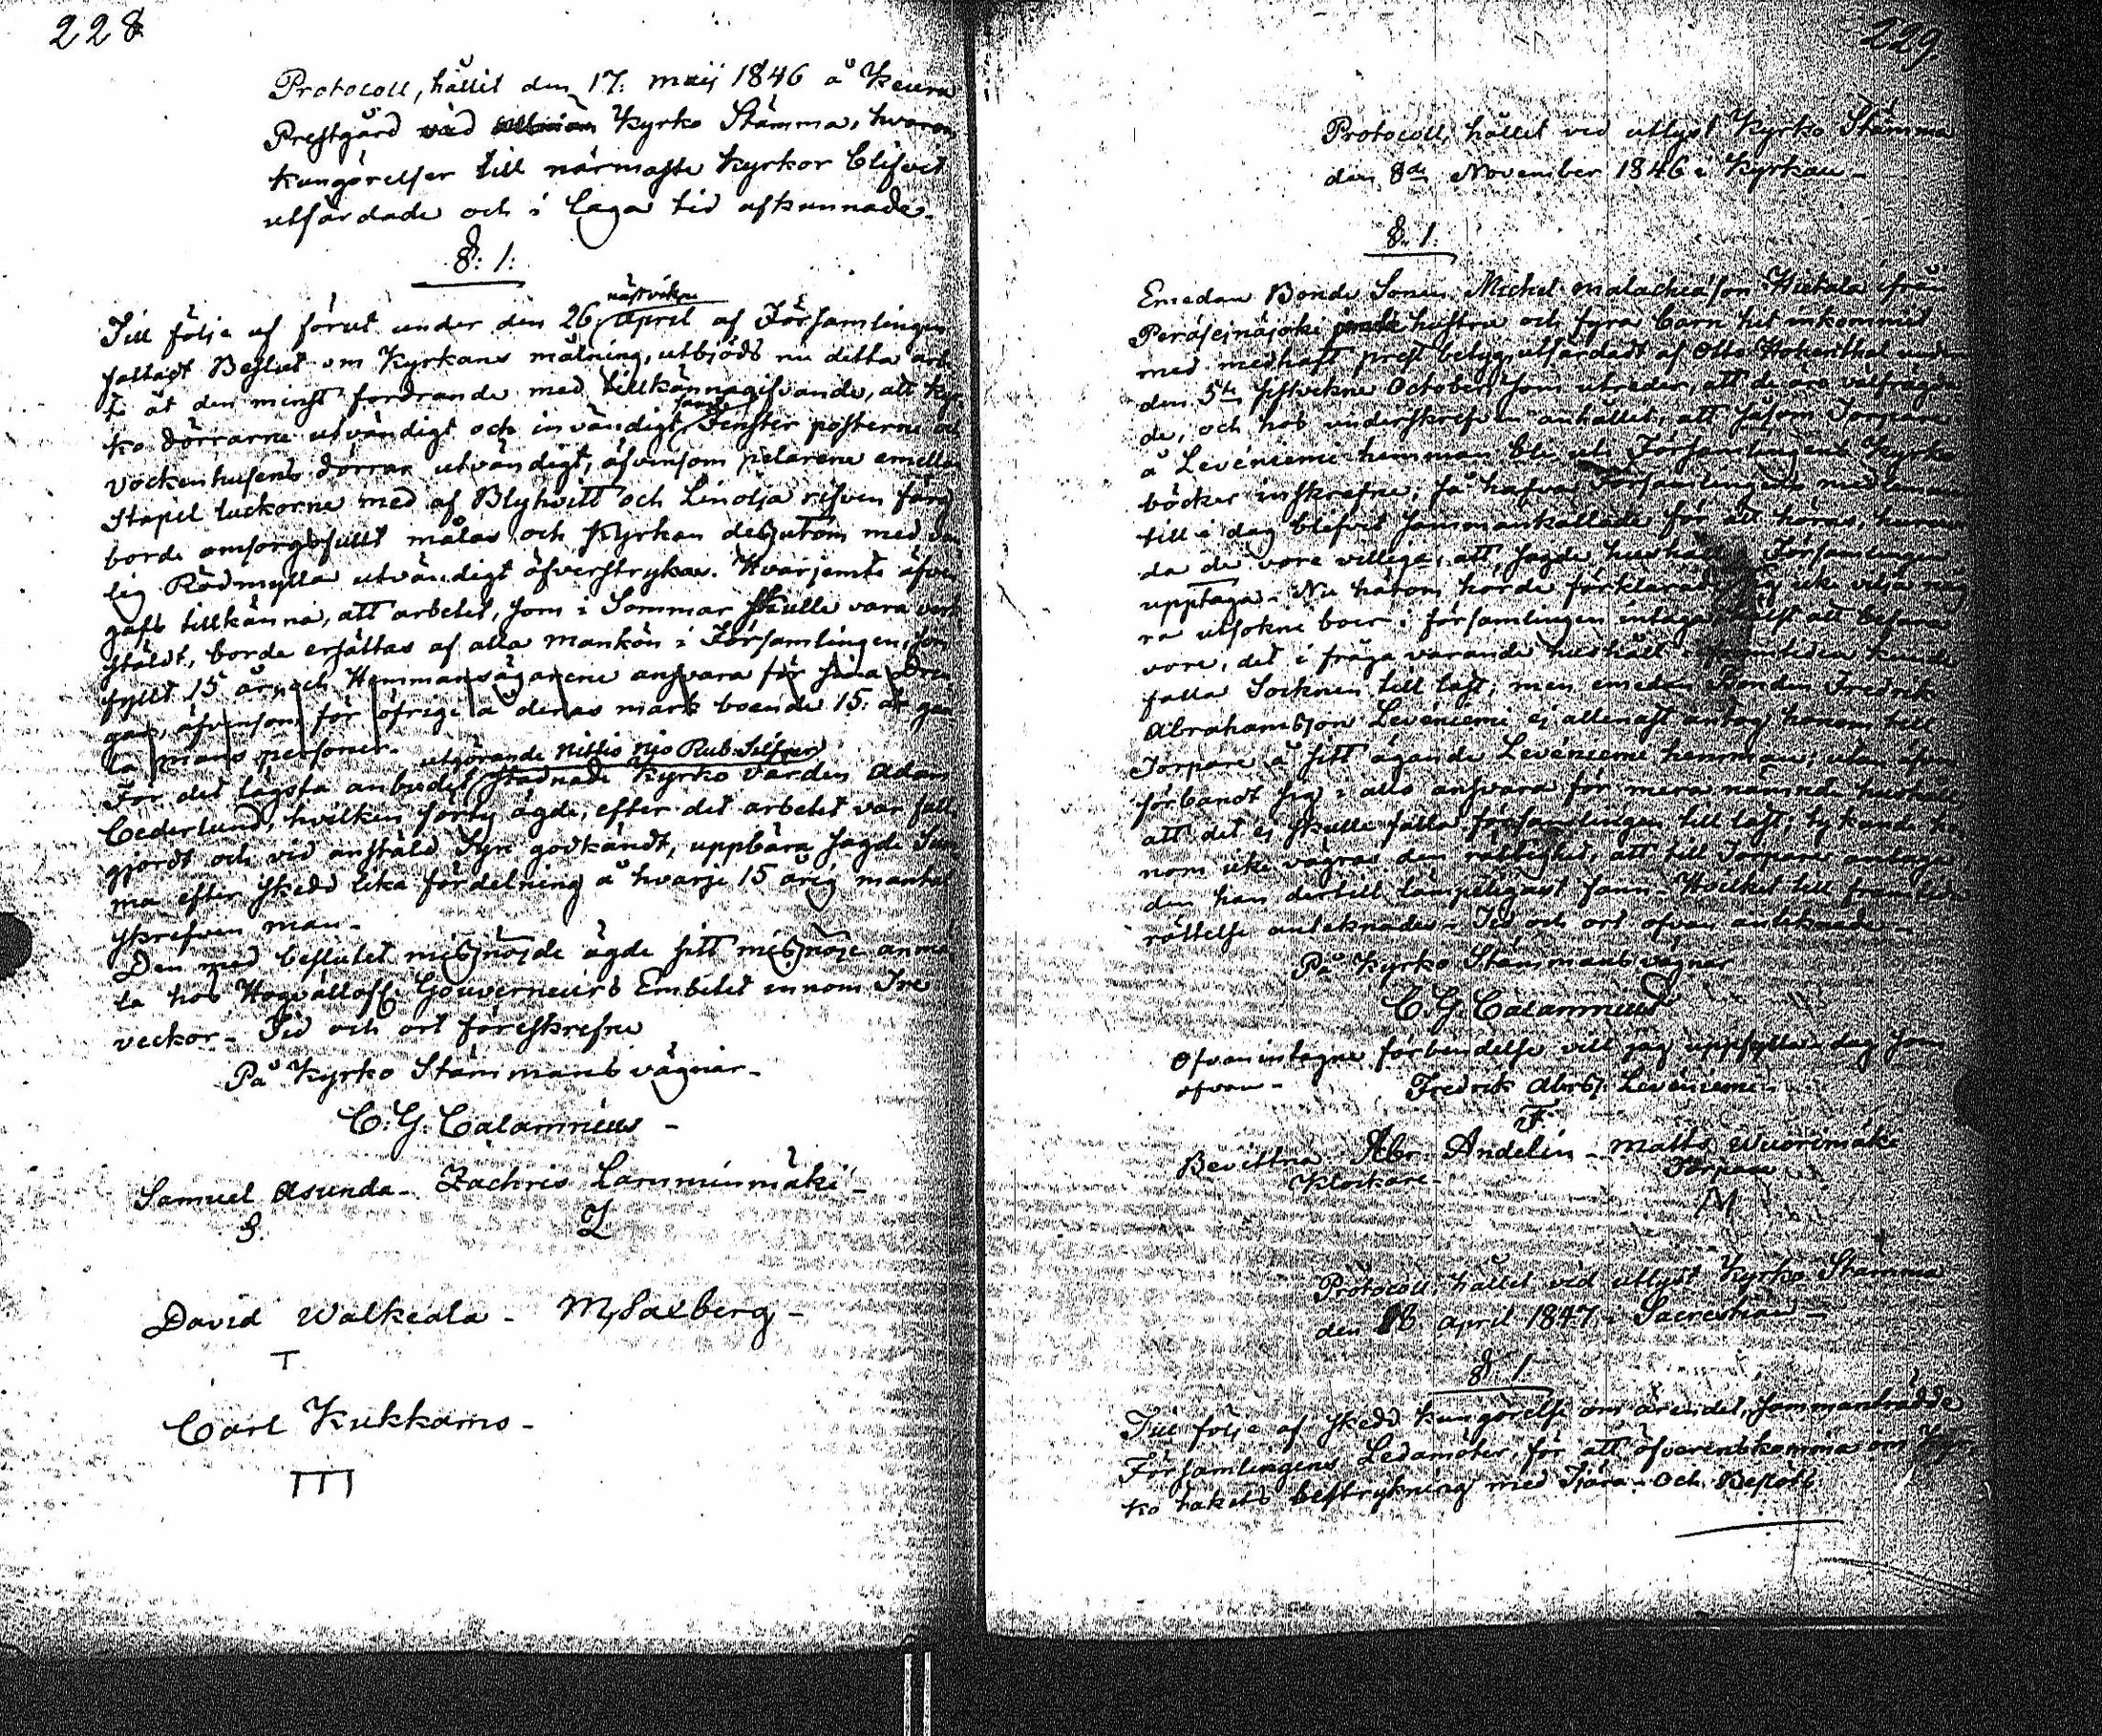 228
Protocoll, hållit den 17. maij 1846 å Keuru
Prestgård vid allmän Kyrko Stämma, hvarom
kungörelser till närmaste Kyrkor blifvit
utfärdade och i laga tid afkunnade.
§: 1:
nästvikne
Till följe af förut under den 26 april af Församlingen
fattadt Beslut om Kyrkans målning, utbjöds nu detta arbe
te åt den minst fordrande med tillkännagifvande, att Kyr
ko dörrarne utvändigt och invändigt, samt Fenster posterne och
Vockenhusens dörrar utvändigt, äfvensom pelarene emellan
Stapel luckorne med af Blyhvitt och Linolja rifven färg
borde omsorgsfullt målas och Kyrkan dessutom med
lig Rödmylla utvändigt öfverstrykas. Hvarjemte äfven
gafs tillkänna, att arbetet, som i Sommar skulle vara verk
stäldt, borde ersättas af alla mankön i Församlingen, som
fyllt 15 år, och Hemmansägarene ansvara för sina Dren
gar, äfvensom för öfrige å deras mark boende 15 år gam
la mans personer.
utgörande nittio nio Rub. Silfver
För det lägsta anbudet stadnade Kyrko värden Adam
Cederlund, hvilken förty ägde, efter det arbetet var full
gjordt och vid anstäld Syn godkändt, uppbära sagde Sum
ma efter skedd lika fördelning å hvarje 15 årig mantal
skrifven man.
Den med beslutet missnöjde ägde sitt missnöje anmä
la hos Högvällofl. Gouverneurs Embetet innom Tre
veckor. Tid och ort föreskrefne
På Kyrko Stämmans vägnar.
C. G. Calamnius
Samuel Asunda. Zachris Lamminmäki
S. Z
David Walkeala. M. Saxberg
T
Carl Kukkamo
TTT
229
Protocoll, hållit vid utlyst Kyrko Stämma
den 8de November 1846 i Kyrkan
§. 1.
Emedan Bonde Sonen Michel Malachiasson Hietala ifrån
Peräseinäjoki hustru och fyra barn hit inkommit
med medhaft prest betyg, utfärdadt af Otto Hohenthal under
den 5te sistvikne October, som utreder, att de äro välfrägda
de, och hos underskrifven anhållit, att såsom Torpare
å Leveniemi hemman bli uti Församlingens Kyrko
böcker inskrefne, så hafva Församlingens medlemmar
till i dag blifvit sammankallade för att höras, huruvi
da de vore villige, att sagde hushåll i Församlingen
upptaga. Nu härom hörde förklarade sig icke vilja någ
ra utsokne boer i församlingen intaga, hälst att befara
vore, det i fråga varande hushåll i framtiden kunde
falla Socknen till last; men emedan Bonden Fredrik
Abrahamsson Leveniemi ej allenast antog honom till
Torpare å sitt ägande Leveniemi hemman, utan äfven
förbandt sig i allo ansvara för mera nämnde hushåll,
att det ej skulle falla församlingen till last, tycktes ho
nom icke vägras den rättighet, att till Torpare antaga
den han dertill lämpeligast fann. Hvilket till framtida
rättelse antecknades. Tid och ort ofvan antecknade.
På Kyrko Stämmans vägnar
C. G. Calamnius
Ofvanintagne förbindelse vill jag uppfylla dag som
ofvan. Fredrik Abrss. Leveniemi.
F
Bevittna Abr. Andelin Matts Wuorimäki
Klockare. Torpare
M
Protocoll, hållit vid utlyst Kyrko Stämma
den april 1847 i Sacrestian
§ 1
Till följe af skedd kungörelse om ärendet, sammanträdde
Församlingens Ledamöter, för att öfverenskomma om Kyr
ko takets bestrykning med Tjära. Och Beslöts